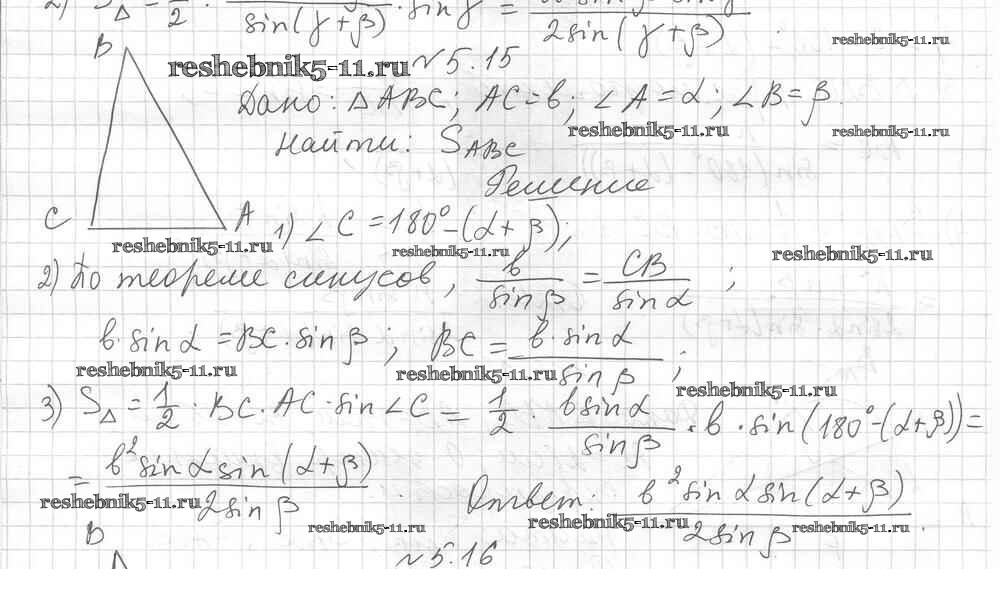 2) S△ = 1/2 · / sin(γ+β) · sin γ = / 2sin(γ+β) .
reshebnik5-11.ru
B
reshebnik5-11.ru №5.15
Дано: △ABC; AC=b; ∠A=α; ∠B=β.
reshebnik5-11.ru reshebnik5-11.ru
Найти: S ABC
Решение
C A 1) ∠C = 180° – (α+β);
reshebnik5-11.ru reshebnik5-11.ru reshebnik5-11.ru
2) По теореме синусов, b / sin β = CB / sin α ;
b · sin α = BC · sin β ; BC = b · sin α / sin β ;
reshebnik5-11.ru reshebnik5-11.ru reshebnik5-11.ru
3) S△ = 1/2 · BC · AC · sin ∠C = 1/2 · b sin α / sin β · b · sin(180° – (α+β)) =
= b² sin α sin(α+β) / 2 sin β . Ответ: b² sin α sin(α+β) / 2 sin β .
reshebnik5-11.ru reshebnik5-11.ru reshebnik5-11.ru reshebnik5-11.ru
B
№5.16